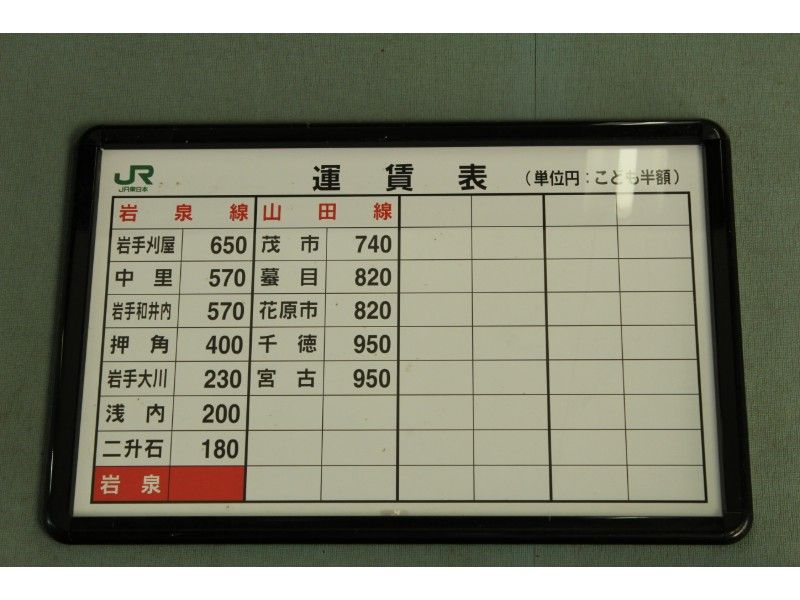 JR
JR東日本
運賃表
(単位円：こども半額)
岩泉線 山田線
岩手刈屋 650 茂市 740
中里 570 蟇目 820
岩手和井内 570 花原市 820
押角 400 千徳 950
岩手大川 230 宮古 950
浅内 200
二升石 180
岩泉